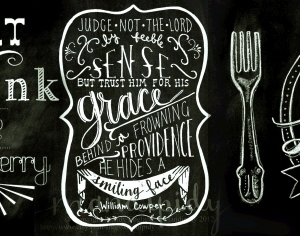 JUDGE • NOT • THE LORD
by feeble
SENSE
BUT TRUST HIM FOR HIS
grace
BEHIND A FROWNING
PROVIDENCE
HE HIDES A
smiling face
William Cowper
nk
erry